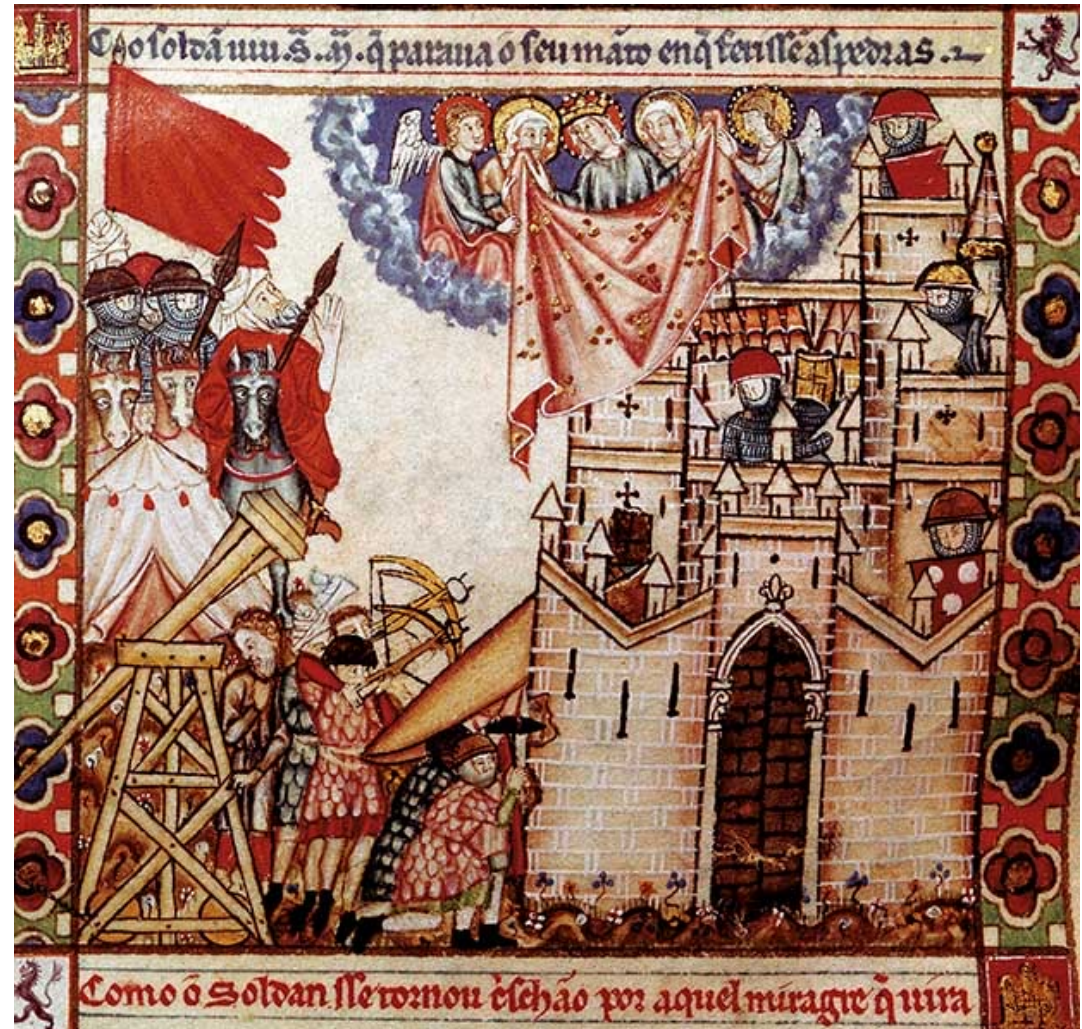 Com̃o soldã uiu.S.M̃.q̃ paraua o seu mãto en q̃ ferissẽ as pedras.
Como o Soldan sse tornou c̃schão por aquel miragre q̃ uira